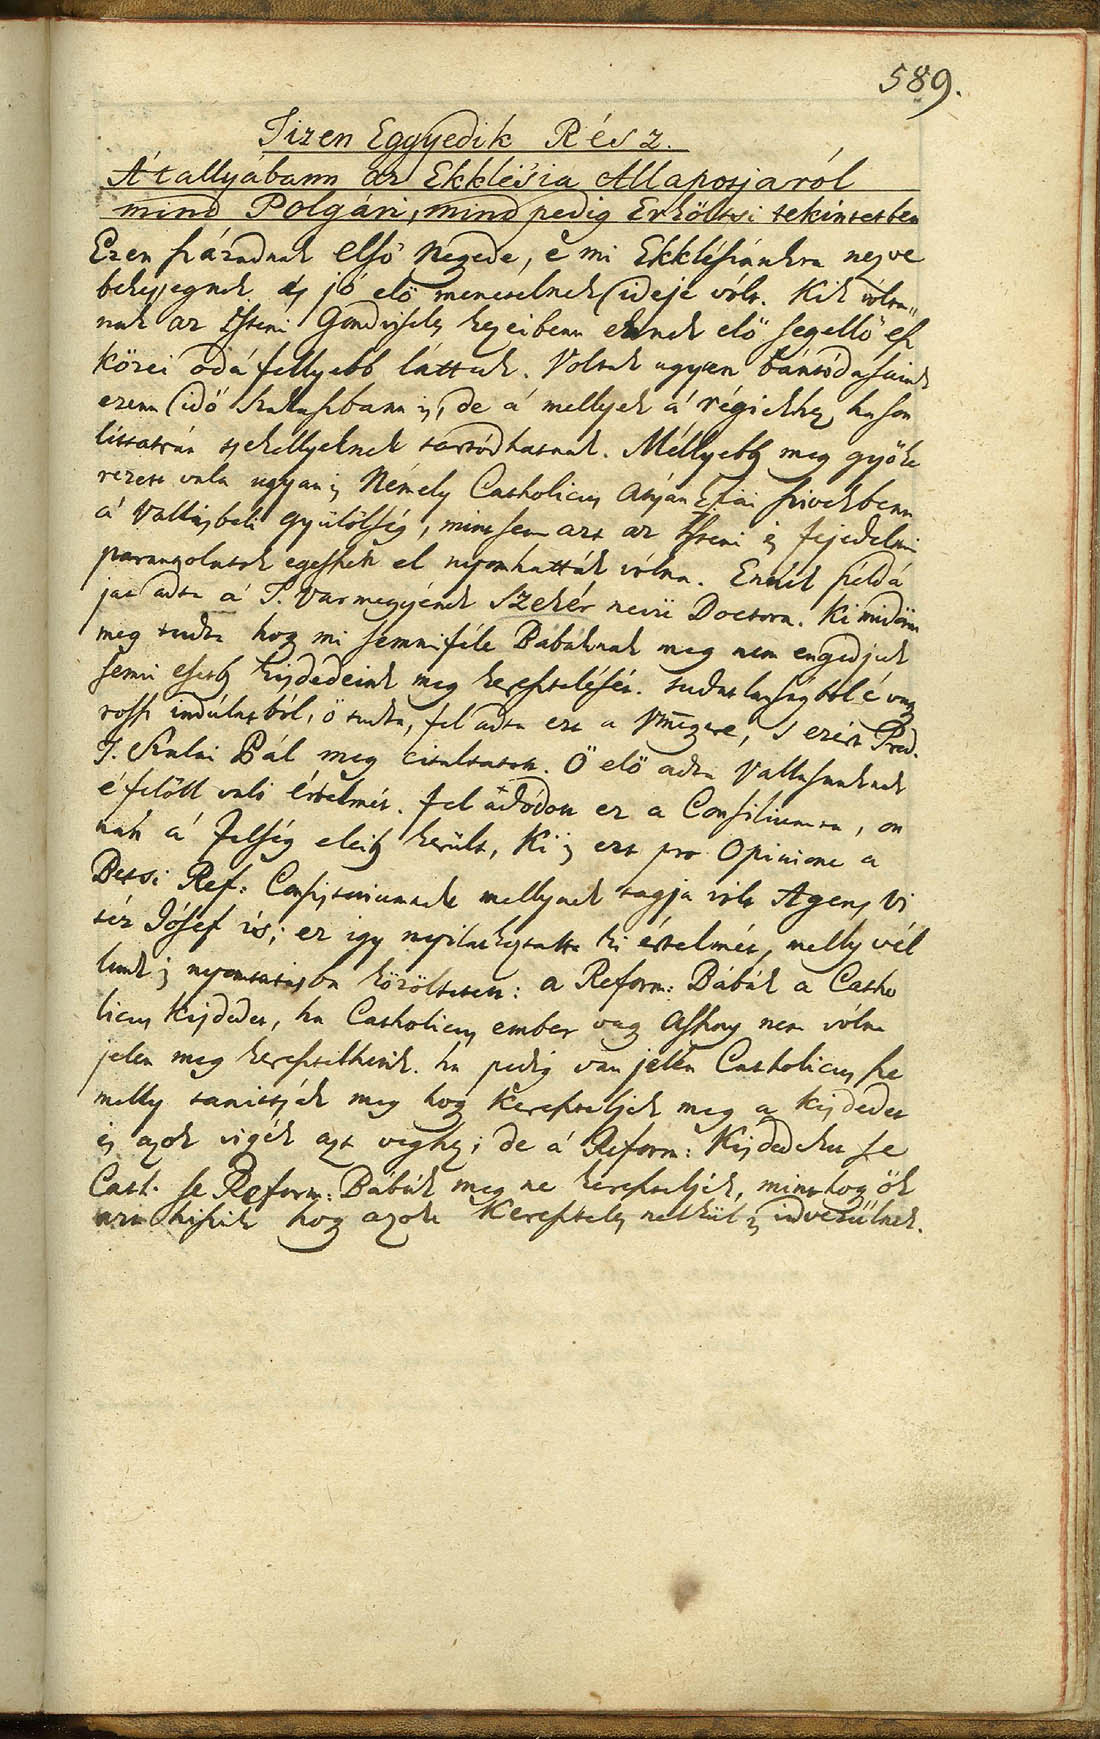 589.
Tizen Eggyedik Rész.
Átallyábann az Ekklésia Állapotjáról
mind Polgári, mind pedig Erköltsi tekintetben
Ezen századnak első Negede, é mi Ekklésiánkra nezve
bekességnek és jó elő menetelnek ideje vólt. Kik vóltanak
nak az Isteni Gondviselés kezeibenn ennek elő segellő esz
közei odá fellyebb láttuk. Voltak ugyan bántódásaink
ezenn idő szakaszbann is, de á mellyek á régiekhez hason
líttatván tsekéllyeknek tartódhatnak. Méllyebb meg gyöke
rezett vala ugyanis Némely Catholicus Atyánkfiai szivekbenn
á Vallásbeli gyülölség, mintsem azt az Isteni és fejedelmi
parantsolatok egeszszen el nyomhatták vólna. Ennek péld
ját adta á T. Varmegyének Szekér nevü Doctora. Ki midőn
meg tudta hogy mi semmiféle Bábáknak meg nem engedjük
semmi esetb Kisdedeink meg keresztelését. tudatlanságból é vagy
rossz indúlatból, ő tudta, fel adta ezt a Vmegyére, s ezért Préd.
T. Szalai Pál meg citáltatott. Ő elő adta Vallásunknak
é felőll való értelmét. Fel adódott ez a Consiliumra, on
nan á Felség eleibe került, Ki is ezt pro Opinione a
Bétsi Ref: Consistoriumnak mellynek tagja vólt Agens Vi
téz Jósef is; ez igy nyilatkoztatta ki értelmét, melly vél
lünk is nyomtatásba közöltetett: a Reform: Bábák a Catho
licus Kisdedet, ha Catholicus ember vagy Asszony nem vólna
jelen meg keresztelhetik. ha pedig van jelen Catholicus sze
mélly tanítsják meg hogy keresztelljék meg a kisdedet
és azok vigék azt véghez; de á Reform: Kisdedeket se
Cath. se Reform: Bábák meg ne kereszteljék, mint hogy ők
azt hiszik hogy azok Keresztség nélkül is idvezülnek.